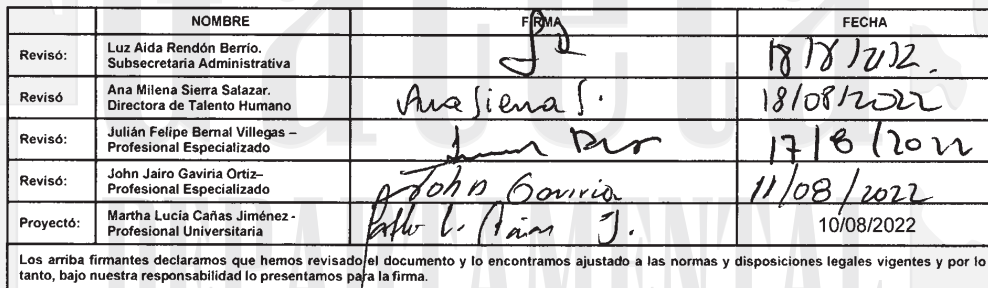 NOMBRE FIRMA FECHA
Revisó: Luz Aida Rendón Berrío.
Subsecretaria Administrativa
18/8/2022.
Revisó Ana Milena Sierra Salazar.
Directora de Talento Humano
Ana Sierra S. 18/08/2022
Revisó: Julián Felipe Bernal Villegas –
Profesional Especializado
17/8/2022
Revisó: John Jairo Gaviria Ortiz–
Profesional Especializado
John Gaviria 11/08/2022
Proyectó: Martha Lucía Cañas Jiménez -
Profesional Universitaria
10/08/2022
Los arriba firmantes declaramos que hemos revisado el documento y lo encontramos ajustado a las normas y disposiciones legales vigentes y por lo
tanto, bajo nuestra responsabilidad lo presentamos para la firma.
DEPARTAMENTAL